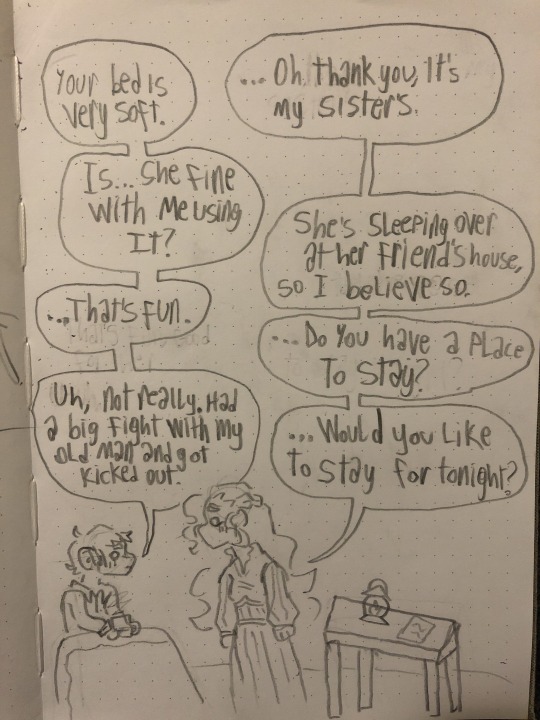 Your bed is
very soft.
... Oh, thank you, It's
my sister's.
Is... She fine
with me using
It?
She's sleeping over
at her friend's house,
so I believe so.
...That's fun.
...Do you have a place
To stay?
Uh, not really. Had
a big fight with my
old man and got
kicked out.
...Would you like
to stay for tonight?